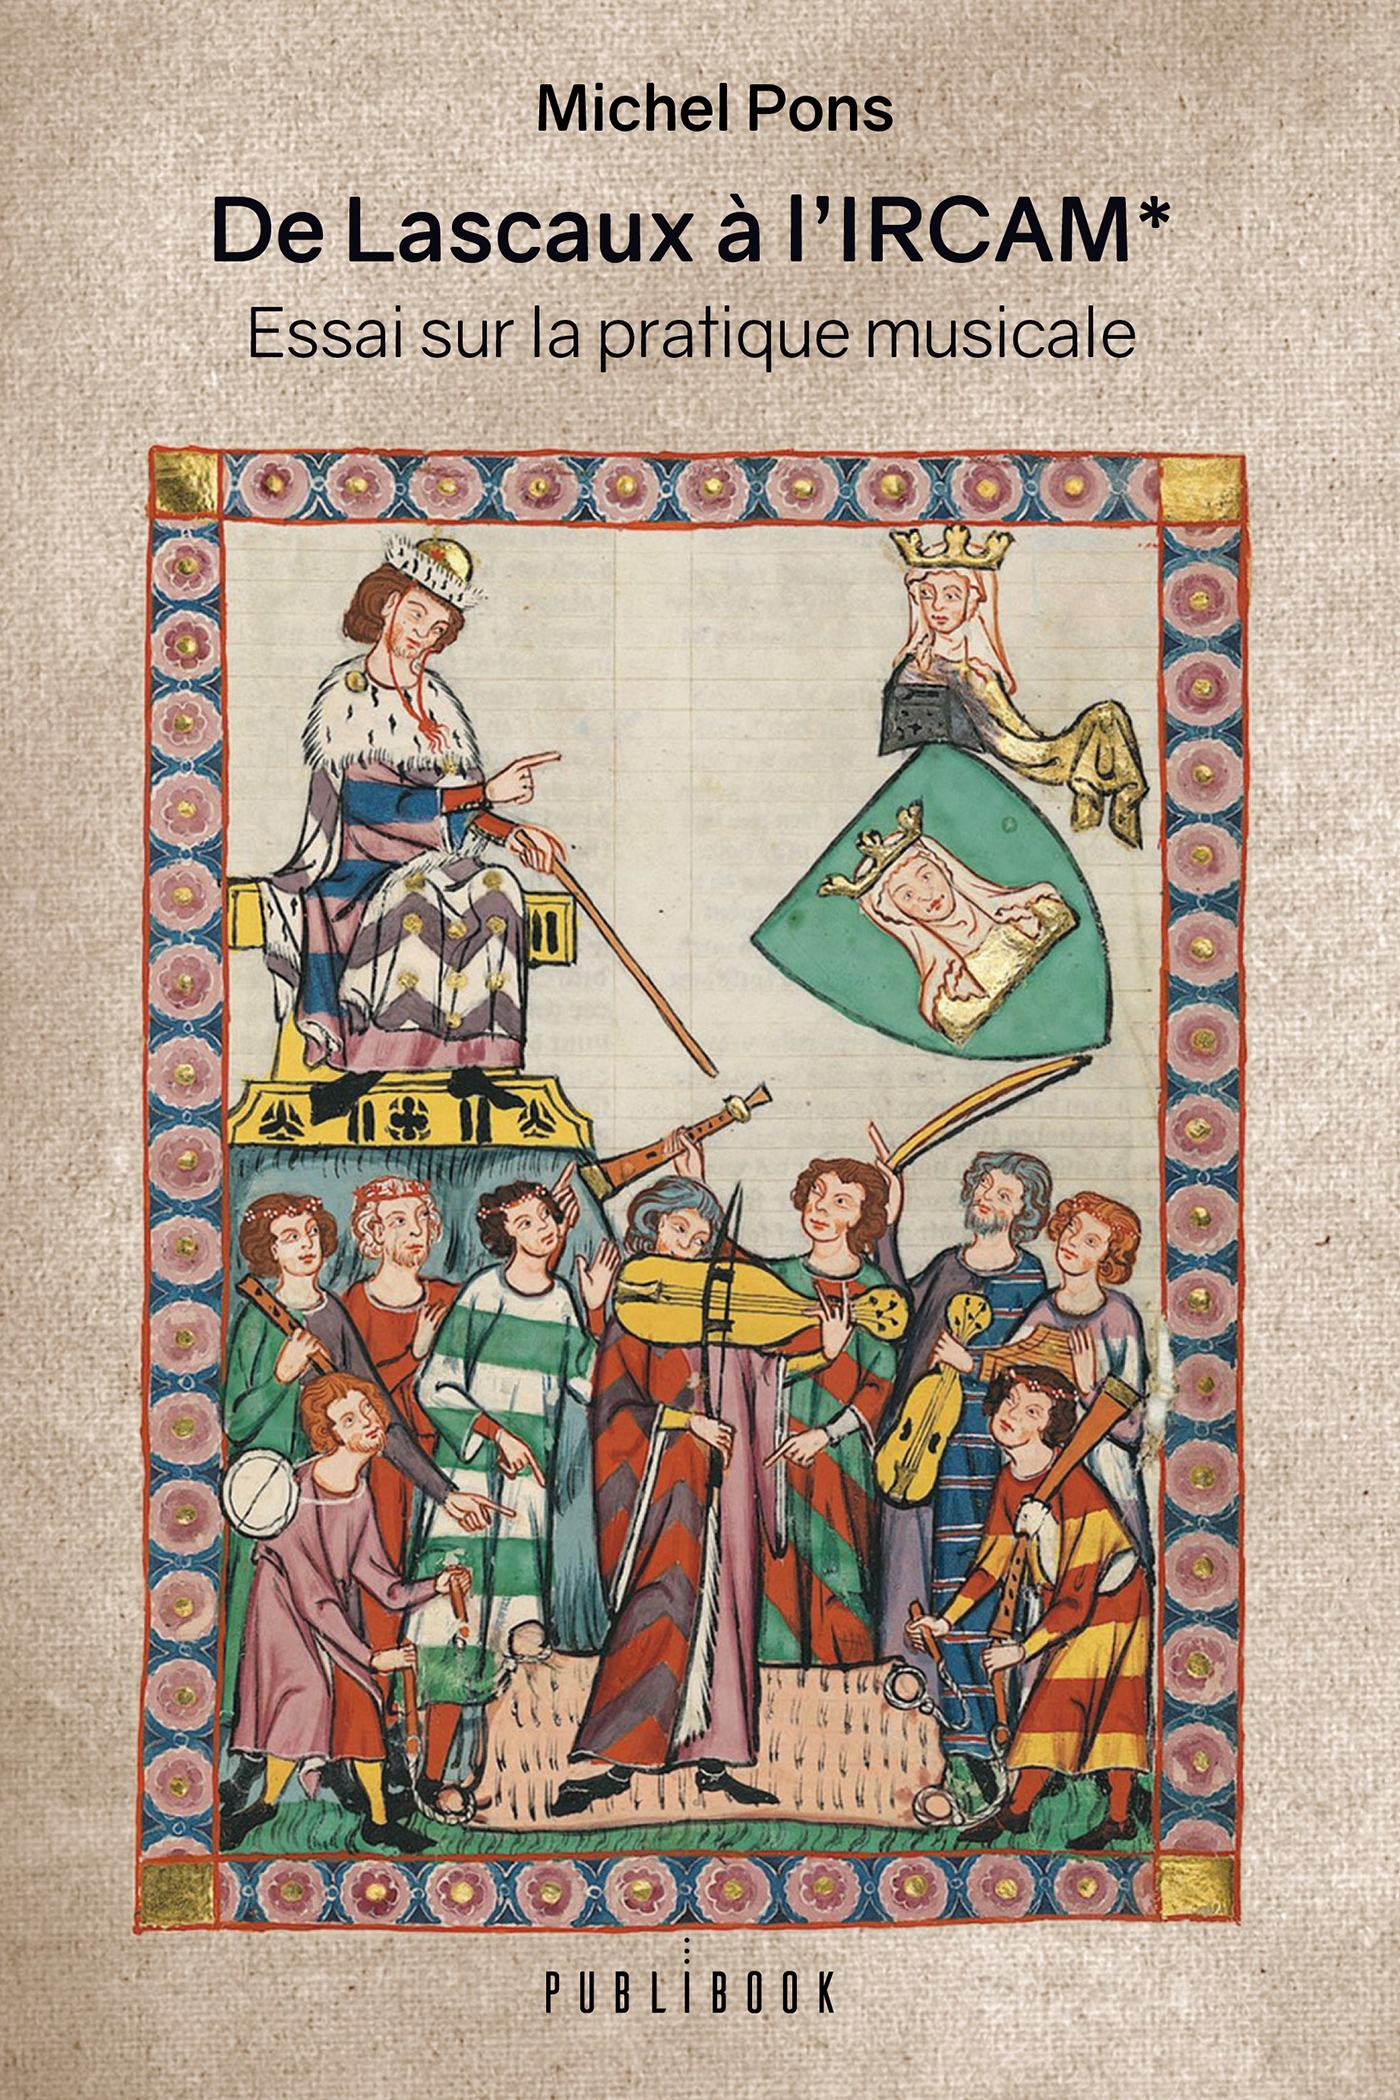 Michel Pons
De Lascaux à l’IRCAM*
Essai sur la pratique musicale
PUBLIBOOK